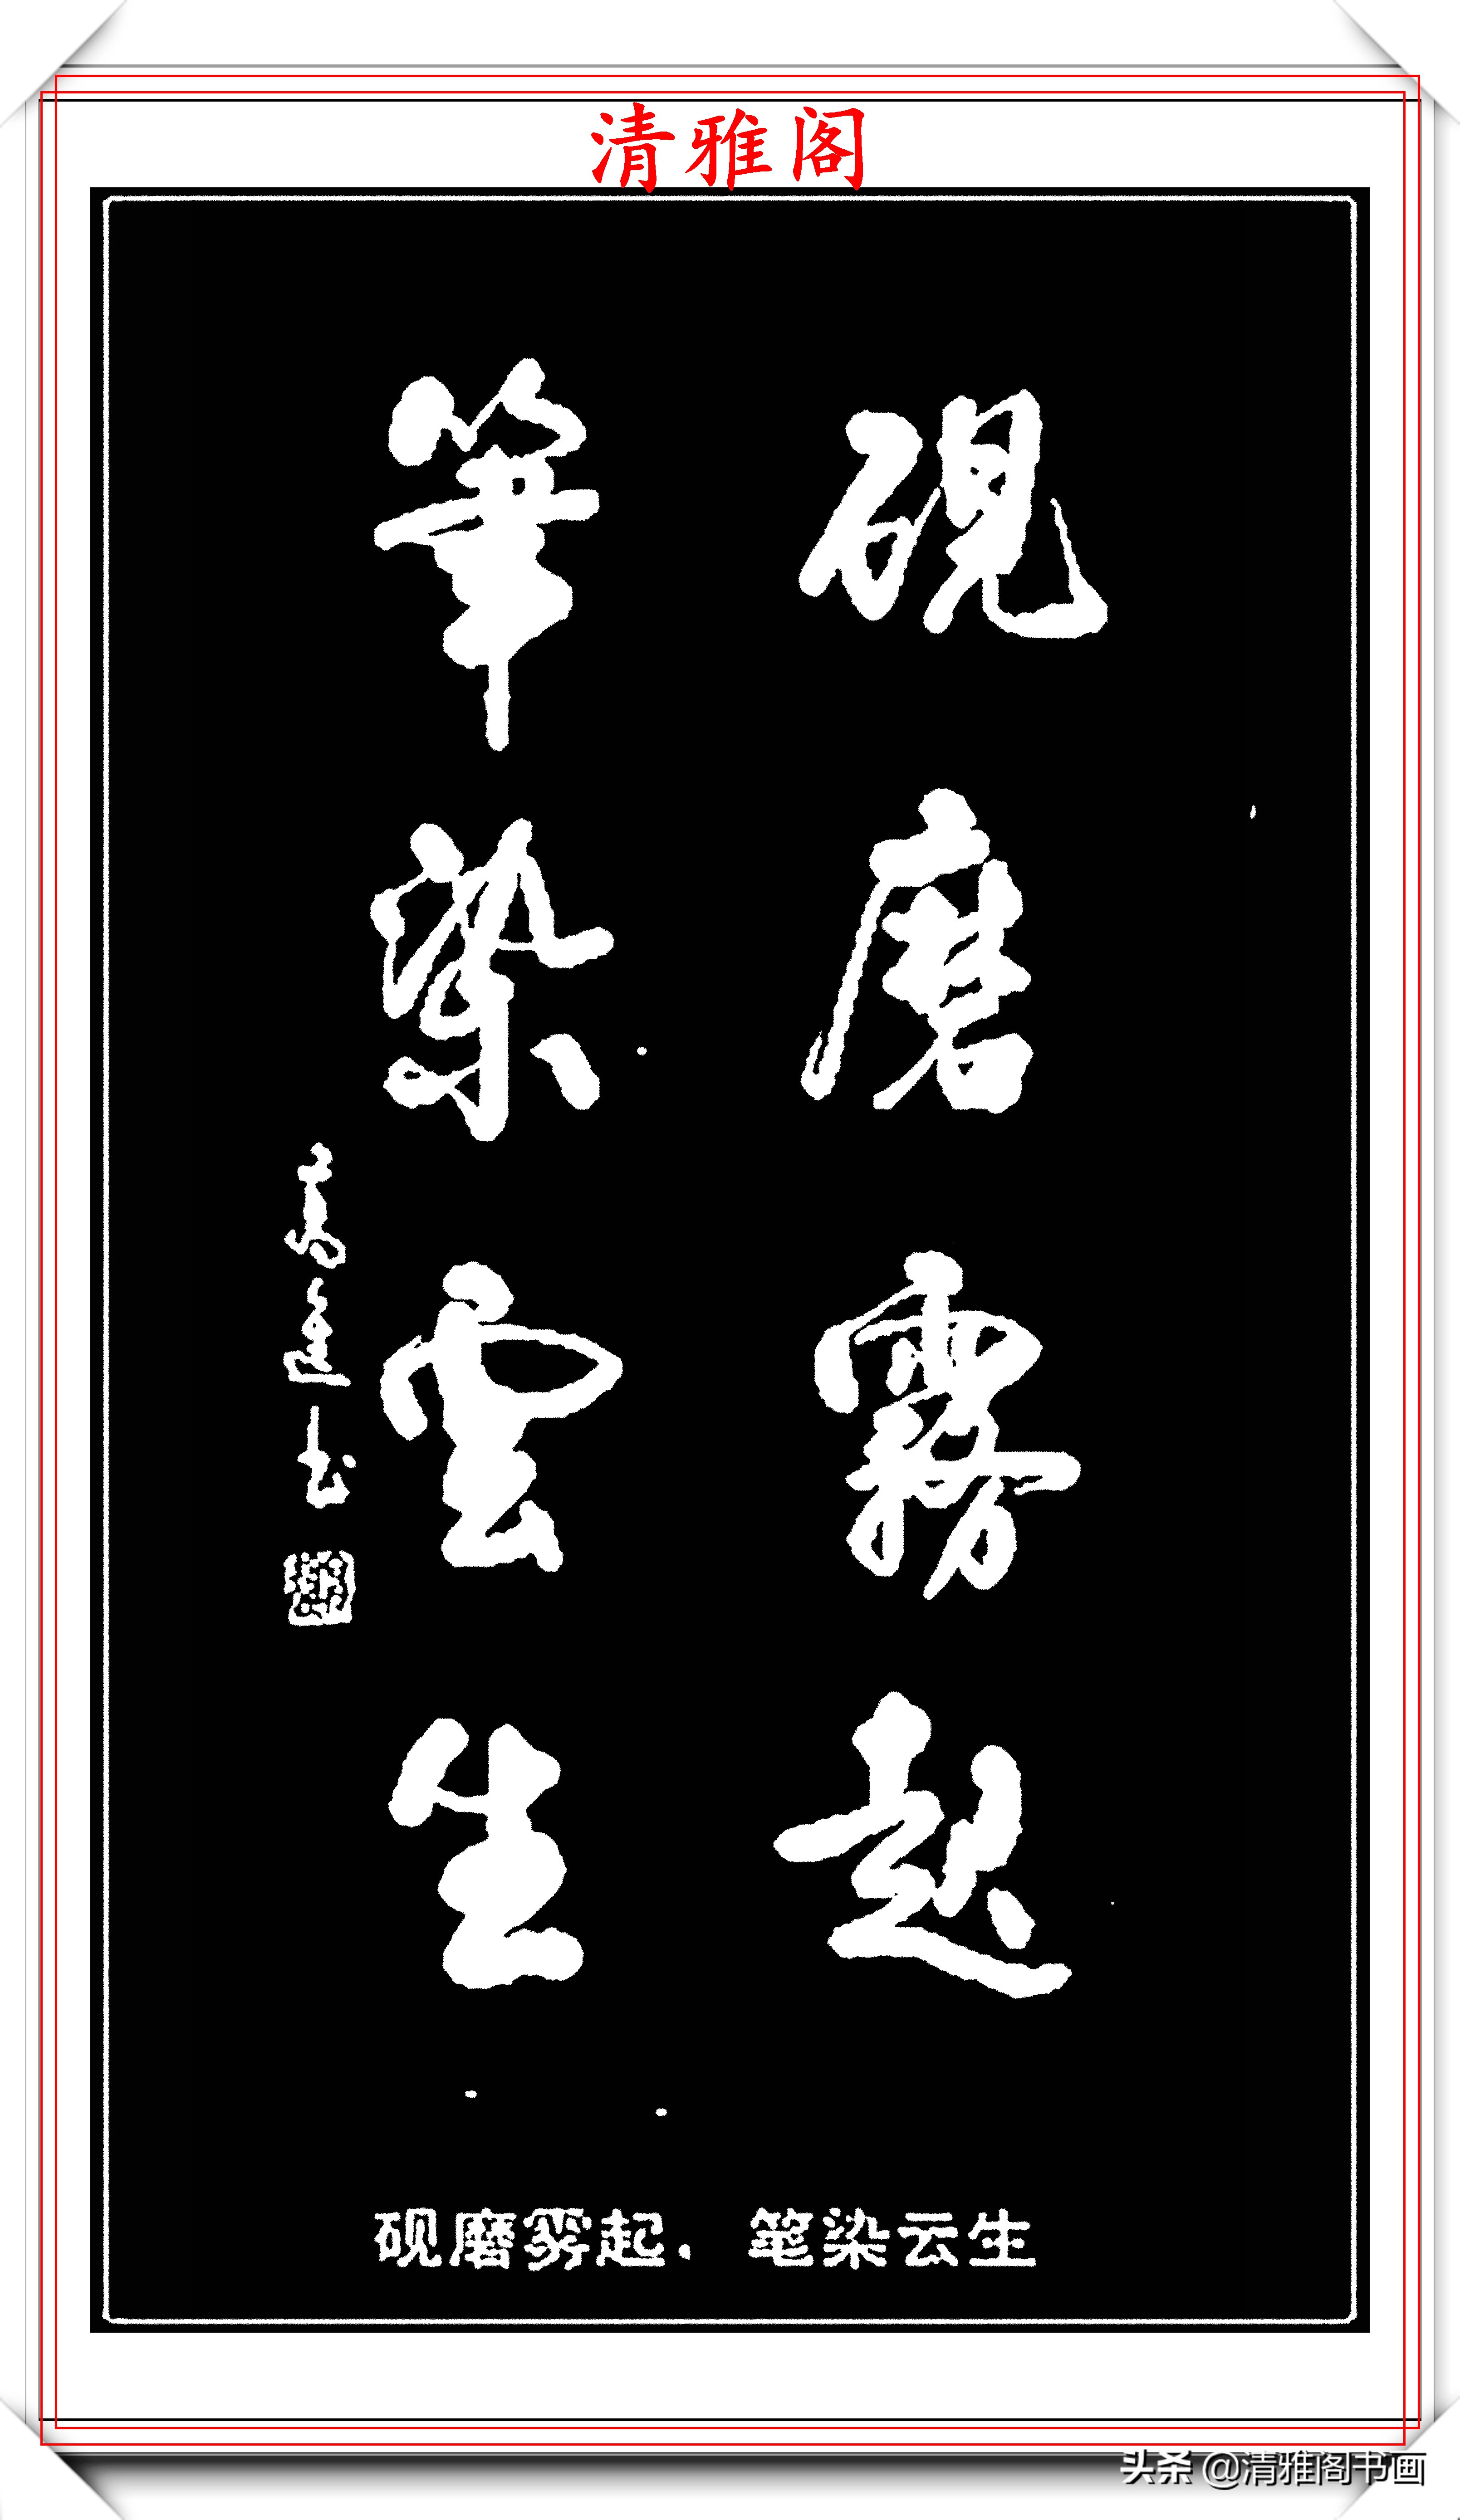 清雅阁
硯磨霧起
筆染雲生
砚磨雾起. 笔染云生
头条 @清雅阁书画